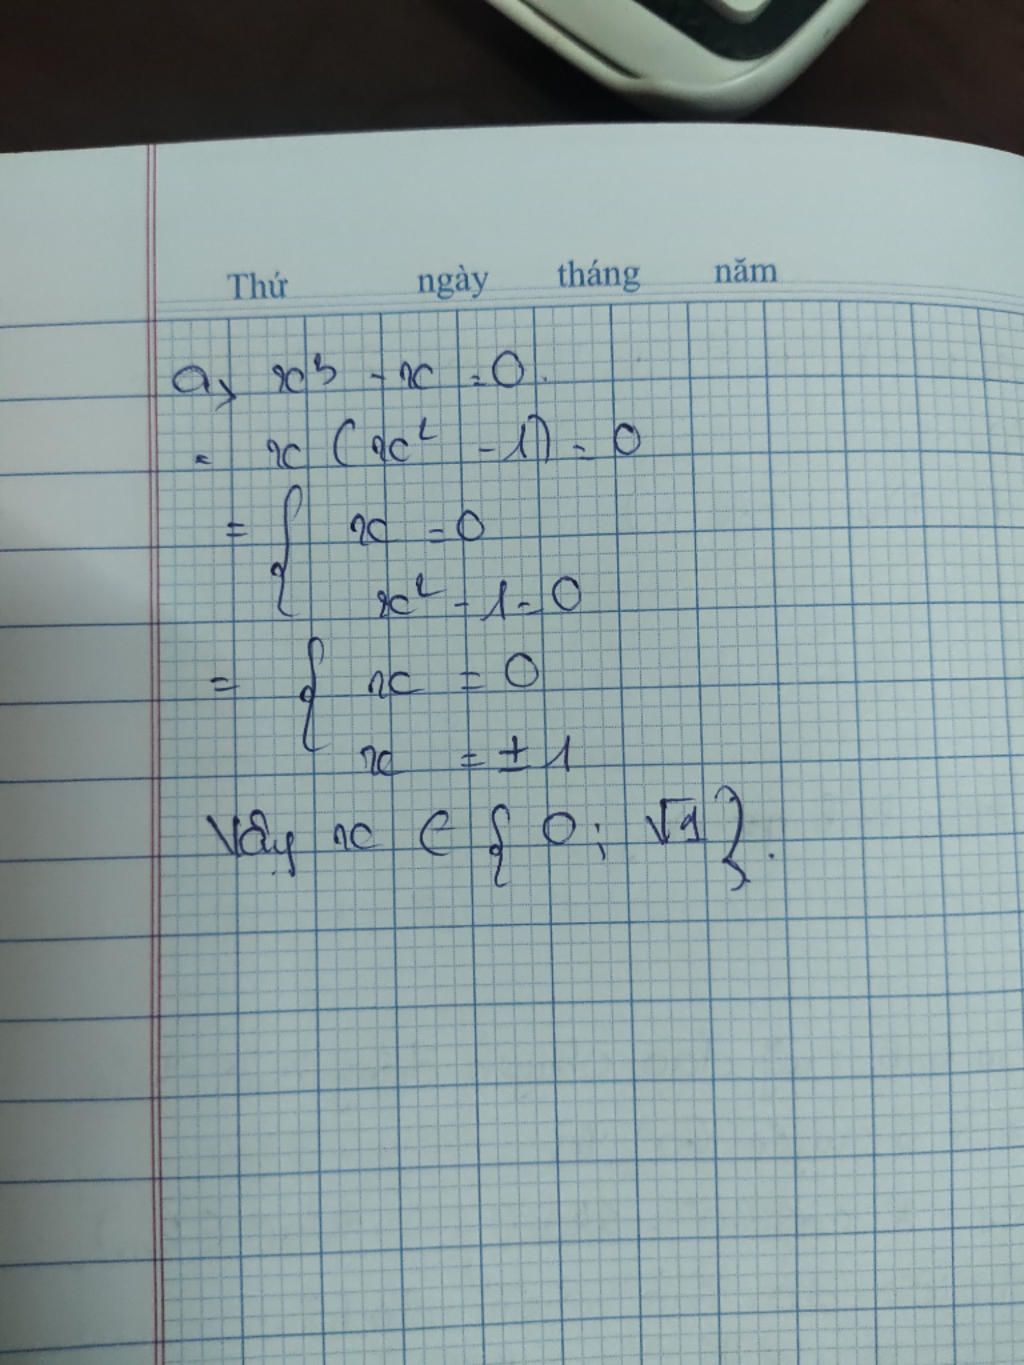 Thứ ngày tháng năm
a, x³ - x = 0.
= x (x² - 1) = 0
= { x = 0
x² - 1 = 0
= { x = 0
x = ± 1
Vậy x ∈ { 0; √1 }.